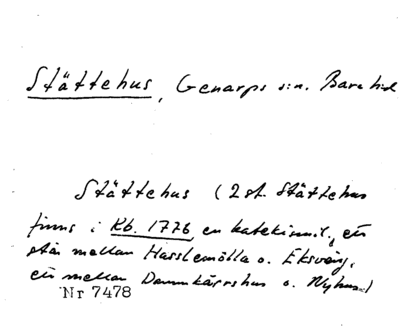 Stättehus, Genarps s:n. Bara hd
Stättehus (2 st. Stättehus
finns i Kb. 1776 en katekismil., ett
står mellan Hasslemölla o. Eksväng,
ett mellan Dammkärrshus o. Nyhus.)
Nr 7478